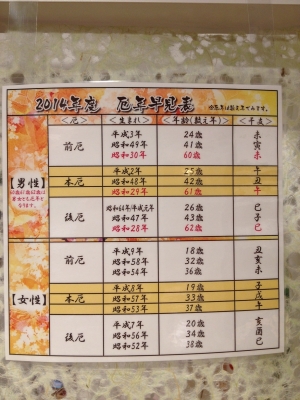 2014年度 厄年早見表
<厄> <生まれ> <年齢(数え年)> <干支>
【男性】
前厄 平成3年 24歳 未
昭和49年 41歳 寅
昭和30年 60歳 未
本厄 平成2年 25歳 午
昭和48年 42歳 丑
昭和29年 61歳 午
後厄 昭和64年/平成元年 26歳 巳
昭和47年 43歳 子
昭和28年 62歳 巳
【女性】
前厄 平成9年 18歳 丑
昭和58年 32歳 亥
昭和54年 36歳 未
本厄 平成8年 19歳 子
昭和57年 33歳 戌
昭和53年 37歳 午
後厄 平成7年 20歳 亥
昭和56年 34歳 酉
昭和52年 38歳 巳